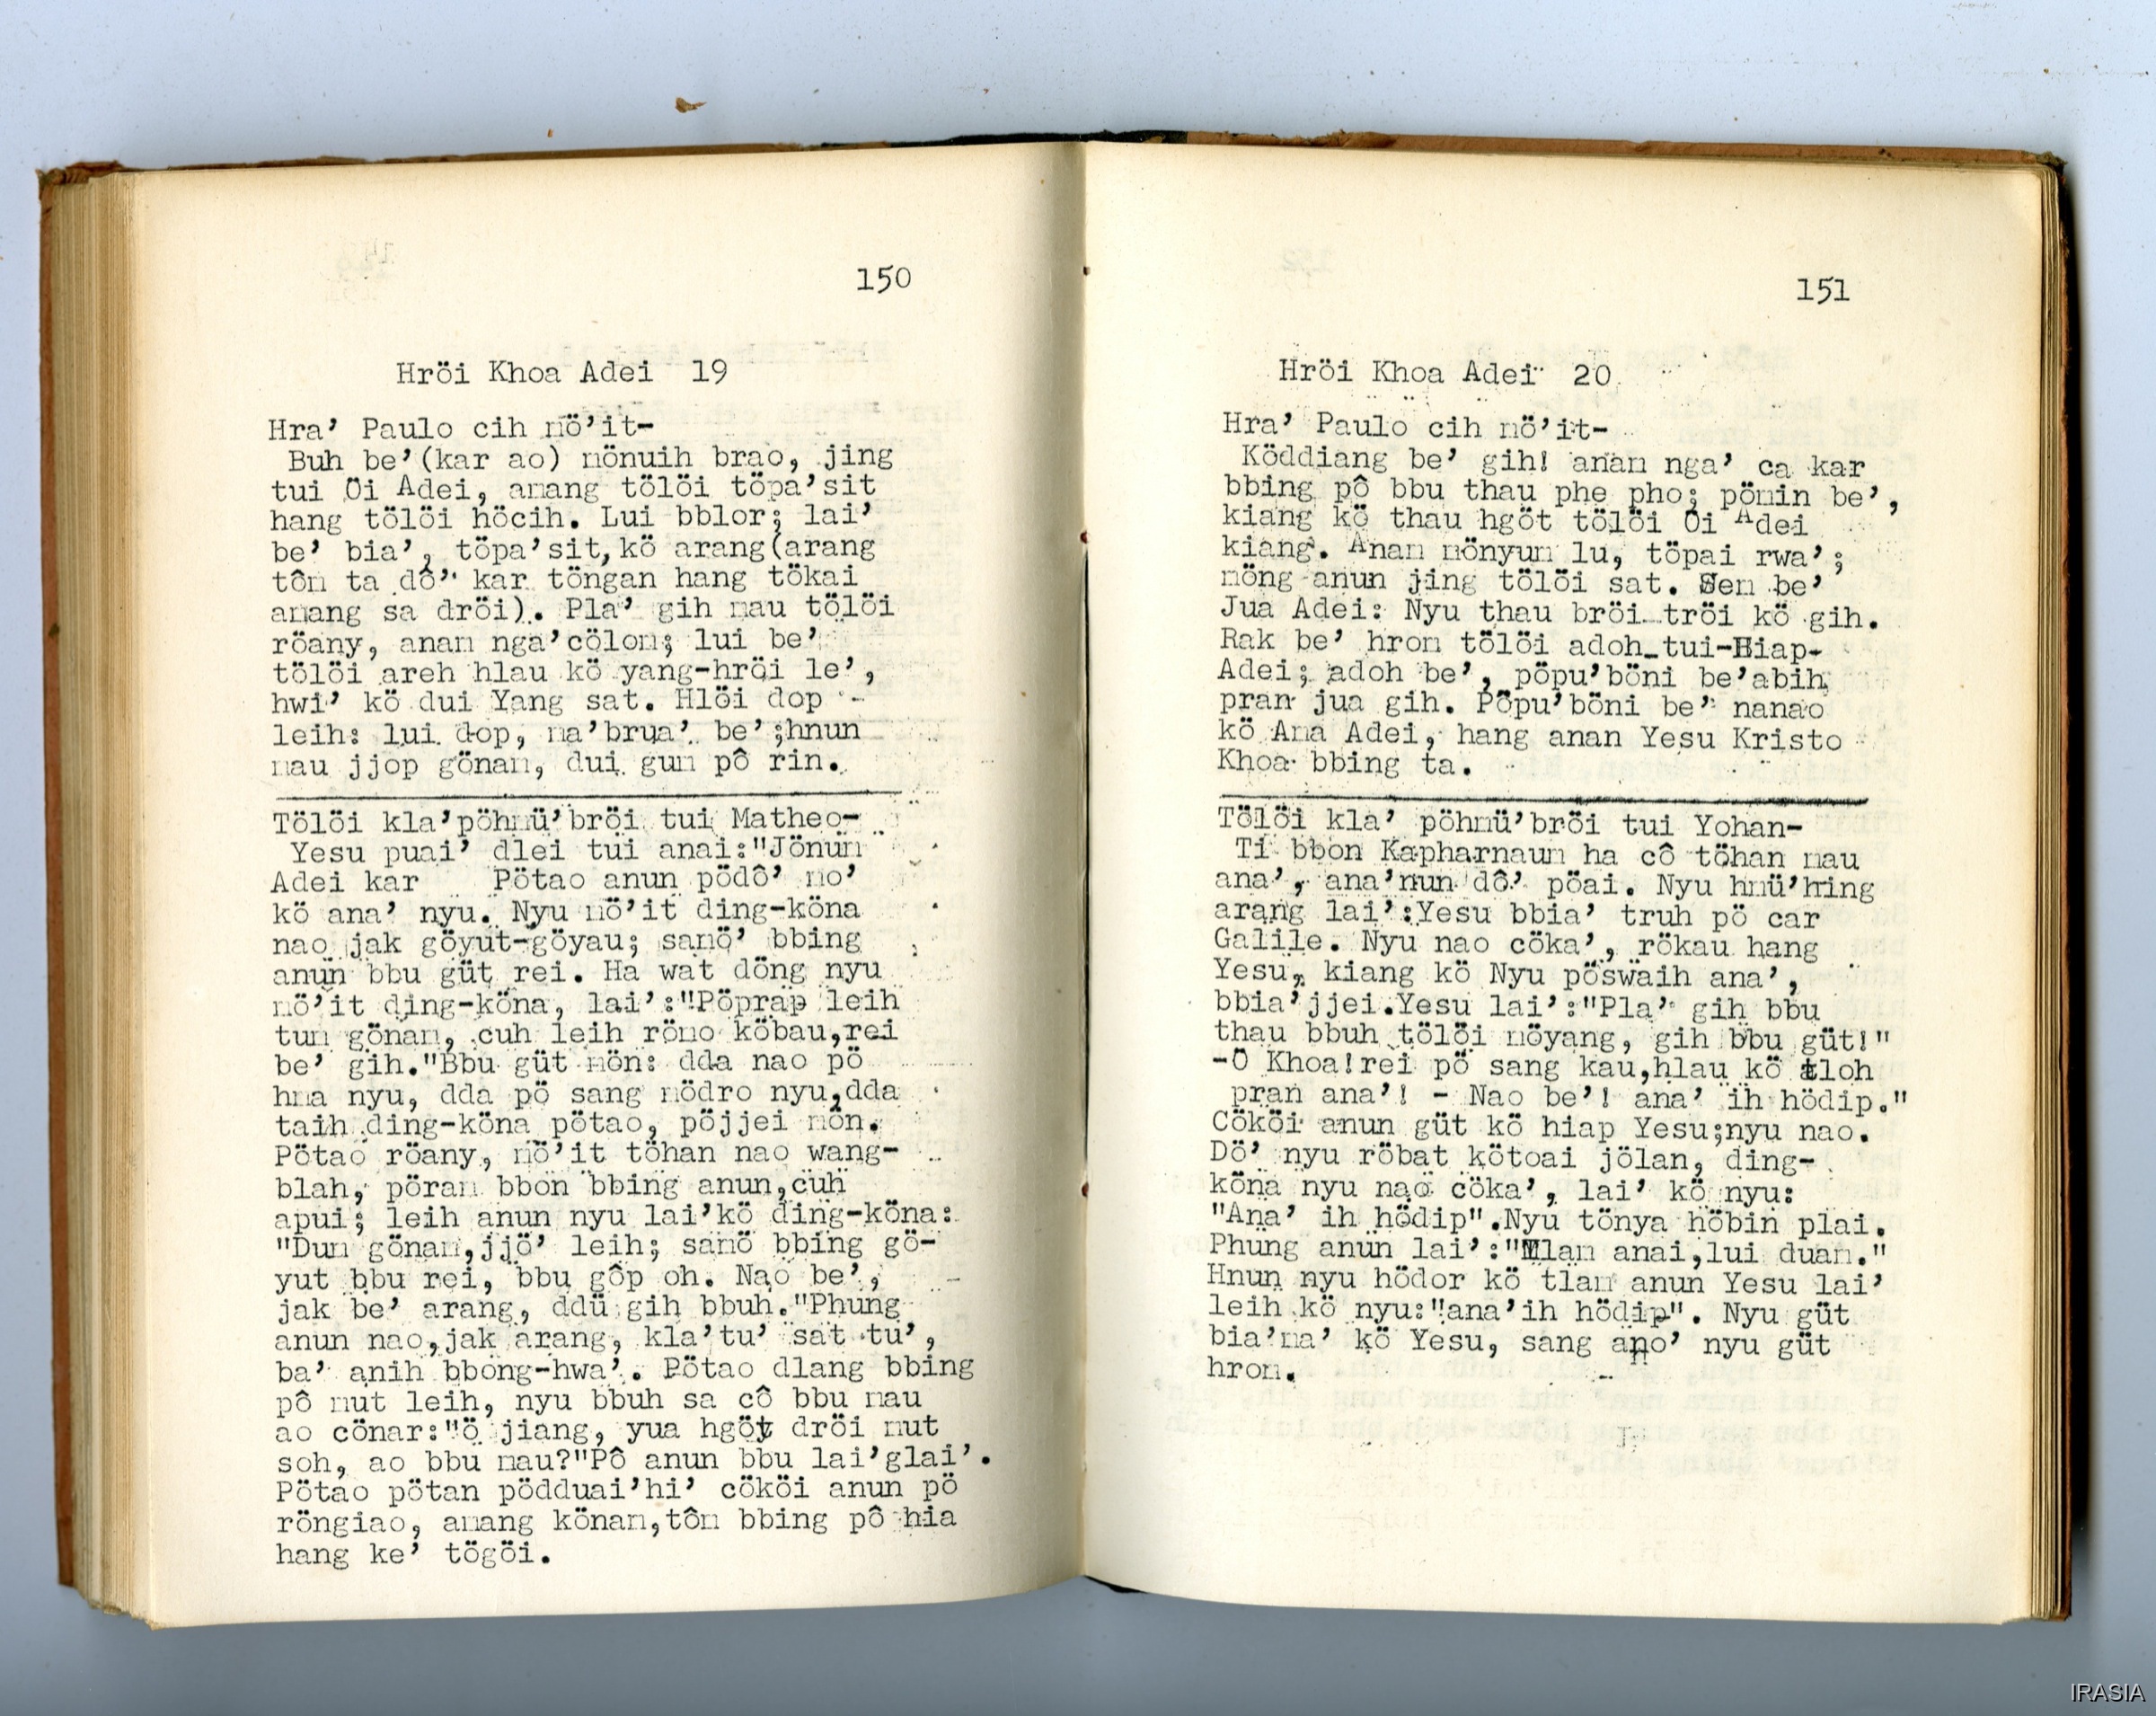 150
Hröi Khoa Adei 19
Hra’ Paulo cih mö’it-
Buh be’(kar ao) mönuih brao, jing
tui Oi Adei, amang tölöi töpa’sit
hang tölöi höcih. Lui bblor; lai’
be’ bia’, töpa’sit, kö arang(arang
tôm ta dô’ kar töngan hang tökai
amang sa dröi). Pla’ gih mau tölöi
röany, anam nga’cölom; lui be’
tölöi areh hlau kö yang-hröi le’,
hwi’ kö dui Yang sat. Hlöi dop
leih: lui dop, ma’brua’ be’;hnun
mau jjop gönam, dui gum pô rin.
Tölöi kla’pöhmü’bröi tui Matheo-
Yesu puai’ dlei tui anai:"Jönum
Adei kar Pötao anun pödô’ mo’
kö ana’ nyu. Nyu mö’it ding-köna
nao jak göyut-göyau; samö’ bbing
anun bbu güt rei. Ha wat döng nyu
mö’it ding-köna, lai’:"Pöprap leih
tum gönam, cuh leih römo köbau,rei
be’ gih."Bbu güt mön: dda nao pö
hma nyu, dda pö sang mödro nyu,dda
taih ding-köna pötao, pöjjei mön.
Pötao röany, mö’it töhan nao wang-
blah, pöram bbon bbing anun,cuh
apui; leih anun nyu lai’kö ding-köna:
"Dum gönam,jjö’ leih; samö bbing gö-
yut bbu rei, bbu gôp oh. Nao be’,
jak be’ arang, ddü gih bbuh."Phung
anun nao,jak arang, kla’tu’ sat tu’,
ba’ anih bbong-hwa’. Pötao dlang bbing
pô mut leih, nyu bbuh sa cô bbu mau
ao cönar:"Ö jiang, yua hgöt dröi mut
soh, ao bbu mau?"Pô anun bbu lai’glai’.
Pötao pötan pödduai’hi’ cököi anun pö
röngiao, amang könam,tôm bbing pô hia
hang ke’ tögöi.
151
Hröi Khoa Adei 20
Hra’ Paulo cih mö’it-
Köddiang be’ gih! anam nga’ ca kar
bbing pô bbu thau phe pho; pömin be’,
kiang kö thau hgöt tölöi Oi Adei
kiang. Anam mönyum lu, töpai rwa’;
möng anun jing tölöi sat. Sem be’
Jua Adei: Nyu thau bröi tröi kö gih.
Rak be’ hrom tölöi adoh tui-Hiap-
Adei; adoh be’, pöpu’böni be’abih
pran jua gih. Pöpu’böni be’ nanao
kö Ama Adei, hang anan Yesu Kristo
Khoa bbing ta.
Tölöi kla’ pöhmü’bröi tui Yohan-
Ti bbon Kapharnaum ha cô töhan mau
ana’, ana’nun dô’ pöai. Nyu hmü’hing
arang lai’:Yesu bbia’ truh pö car
Galile. Nyu nao cöka’, rökau hang
Yesu, kiang kö Nyu pöswaih ana’,
bbia’jjei.Yesu lai’:"Pla’ gih bbu
thau bbuh tölöi möyang, gih bbu güt!"
-O Khoa!rei pö sang kau,hlau kö tloh
pran ana’! - Nao be’! ana’ ih hödip."
Cököi anun güt kö hiap Yesu;nyu nao.
Dö’ nyu röbat kötoai jölan, ding-
köna nyu nao cöka’, lai’ kö nyu:
"Ana’ ih hödip".Nyu tönya höbin plai.
Phung anun lai’:"Mlam anai,lui duam."
Hnun nyu hödor kö tlam anun Yesu lai’
leih kö nyu:"ana’ih hödip". Nyu güt
bia’ma’ kö Yesu, sang ano’ nyu güt
hrom.
IRASIA